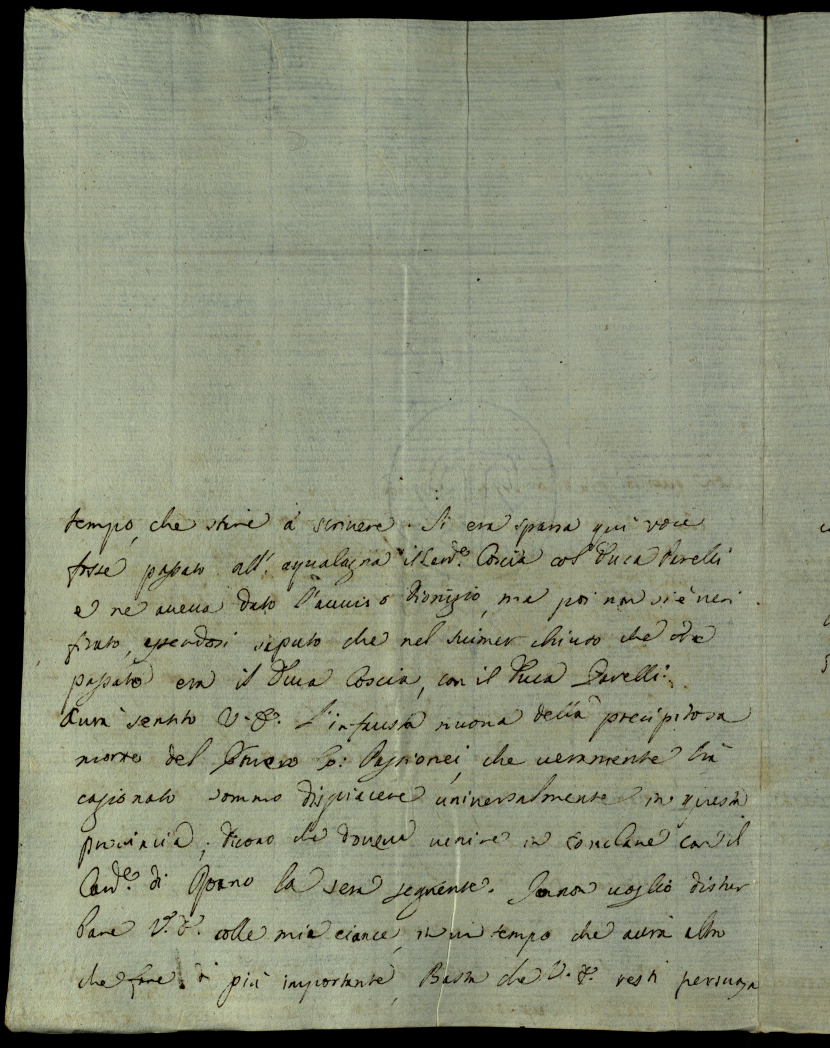 tempo, che stiè à scrivere. Si era sparsa quì voce
fosse passato all'aqualagna il Card.e Coscia col Duca
e ne aveva dato l'avviso Dionigio, ma poi non si è veri
ficato, essendosi saputo che nel chiuso che
passato era il Duca Coscia, con il Duca
Aurà sentito V. E. l'infausta nuova della precipitosa
morte del Povero Passionei, che veramente hà
cagionato sommo dispiacere universalmente in questa
provincia; dicono che doveva venire in conclave con il
Card.e di la sera seguente. Io non voglio distur
bare V. E. colle mie ciance, in un tempo che aurà altro
che fare di più importante, Basta che V. E. resti persuasa